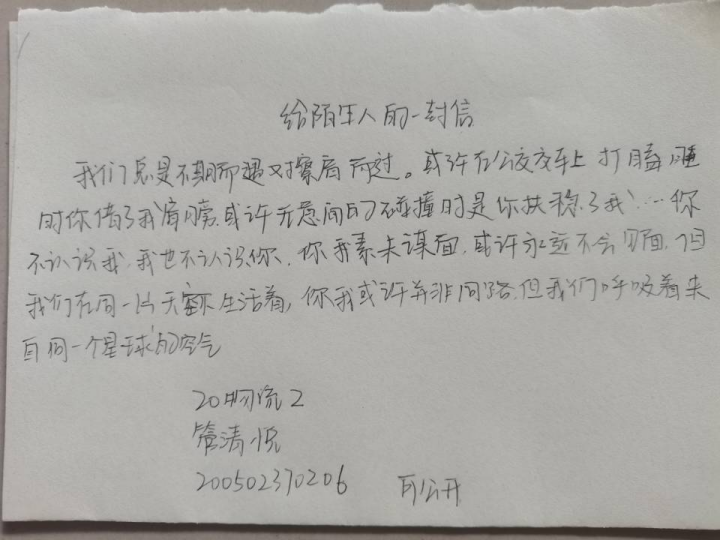 给陌生人的一封信
我们总是不期而遇又擦肩而过。或许在公交车上打瞌睡
时你借了我肩膀,或许无意间的碰撞时是你扶稳了我……你
不认识我,我也不认识你、你我素未谋面,或许永远不会见面,但
我们在同一片天空下生活着,你我或许并非同路,但我们呼吸着来
自同一个星球的空气
20物流2
管清悦
200502370206 可公开